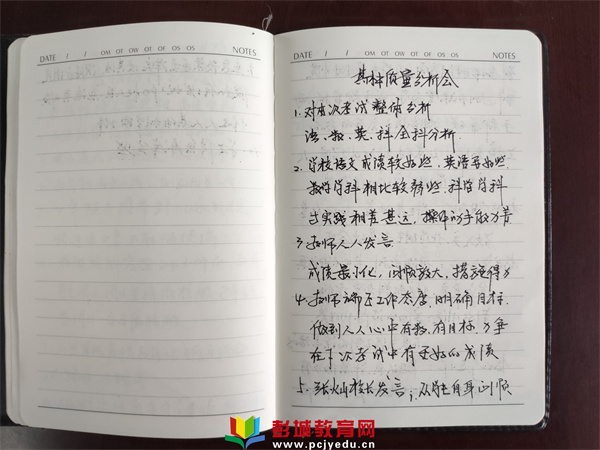 DATE / / OM OT OW OT OF OS OS NOTES
DATE / / OM OT OW OT OF OS OS NOTES
质量分析会
1. 对本次考试整体分析
语、数、英、科全科分析
2. 学校语文成绩较好些，英语再好些
数学学科相比较弱些，科学学科
与实践相差甚远，操作动手能力差
3. 教师人人发言
成绩最小化，问题放大，措施得力
4. 教师端正工作态度，明确目标，
做到人人心中有数，有目标，力争
在下次考试中有更好的成绩
5. 校长发言；从学生自身问题
彭城教育网
www.pcjyedu.cn